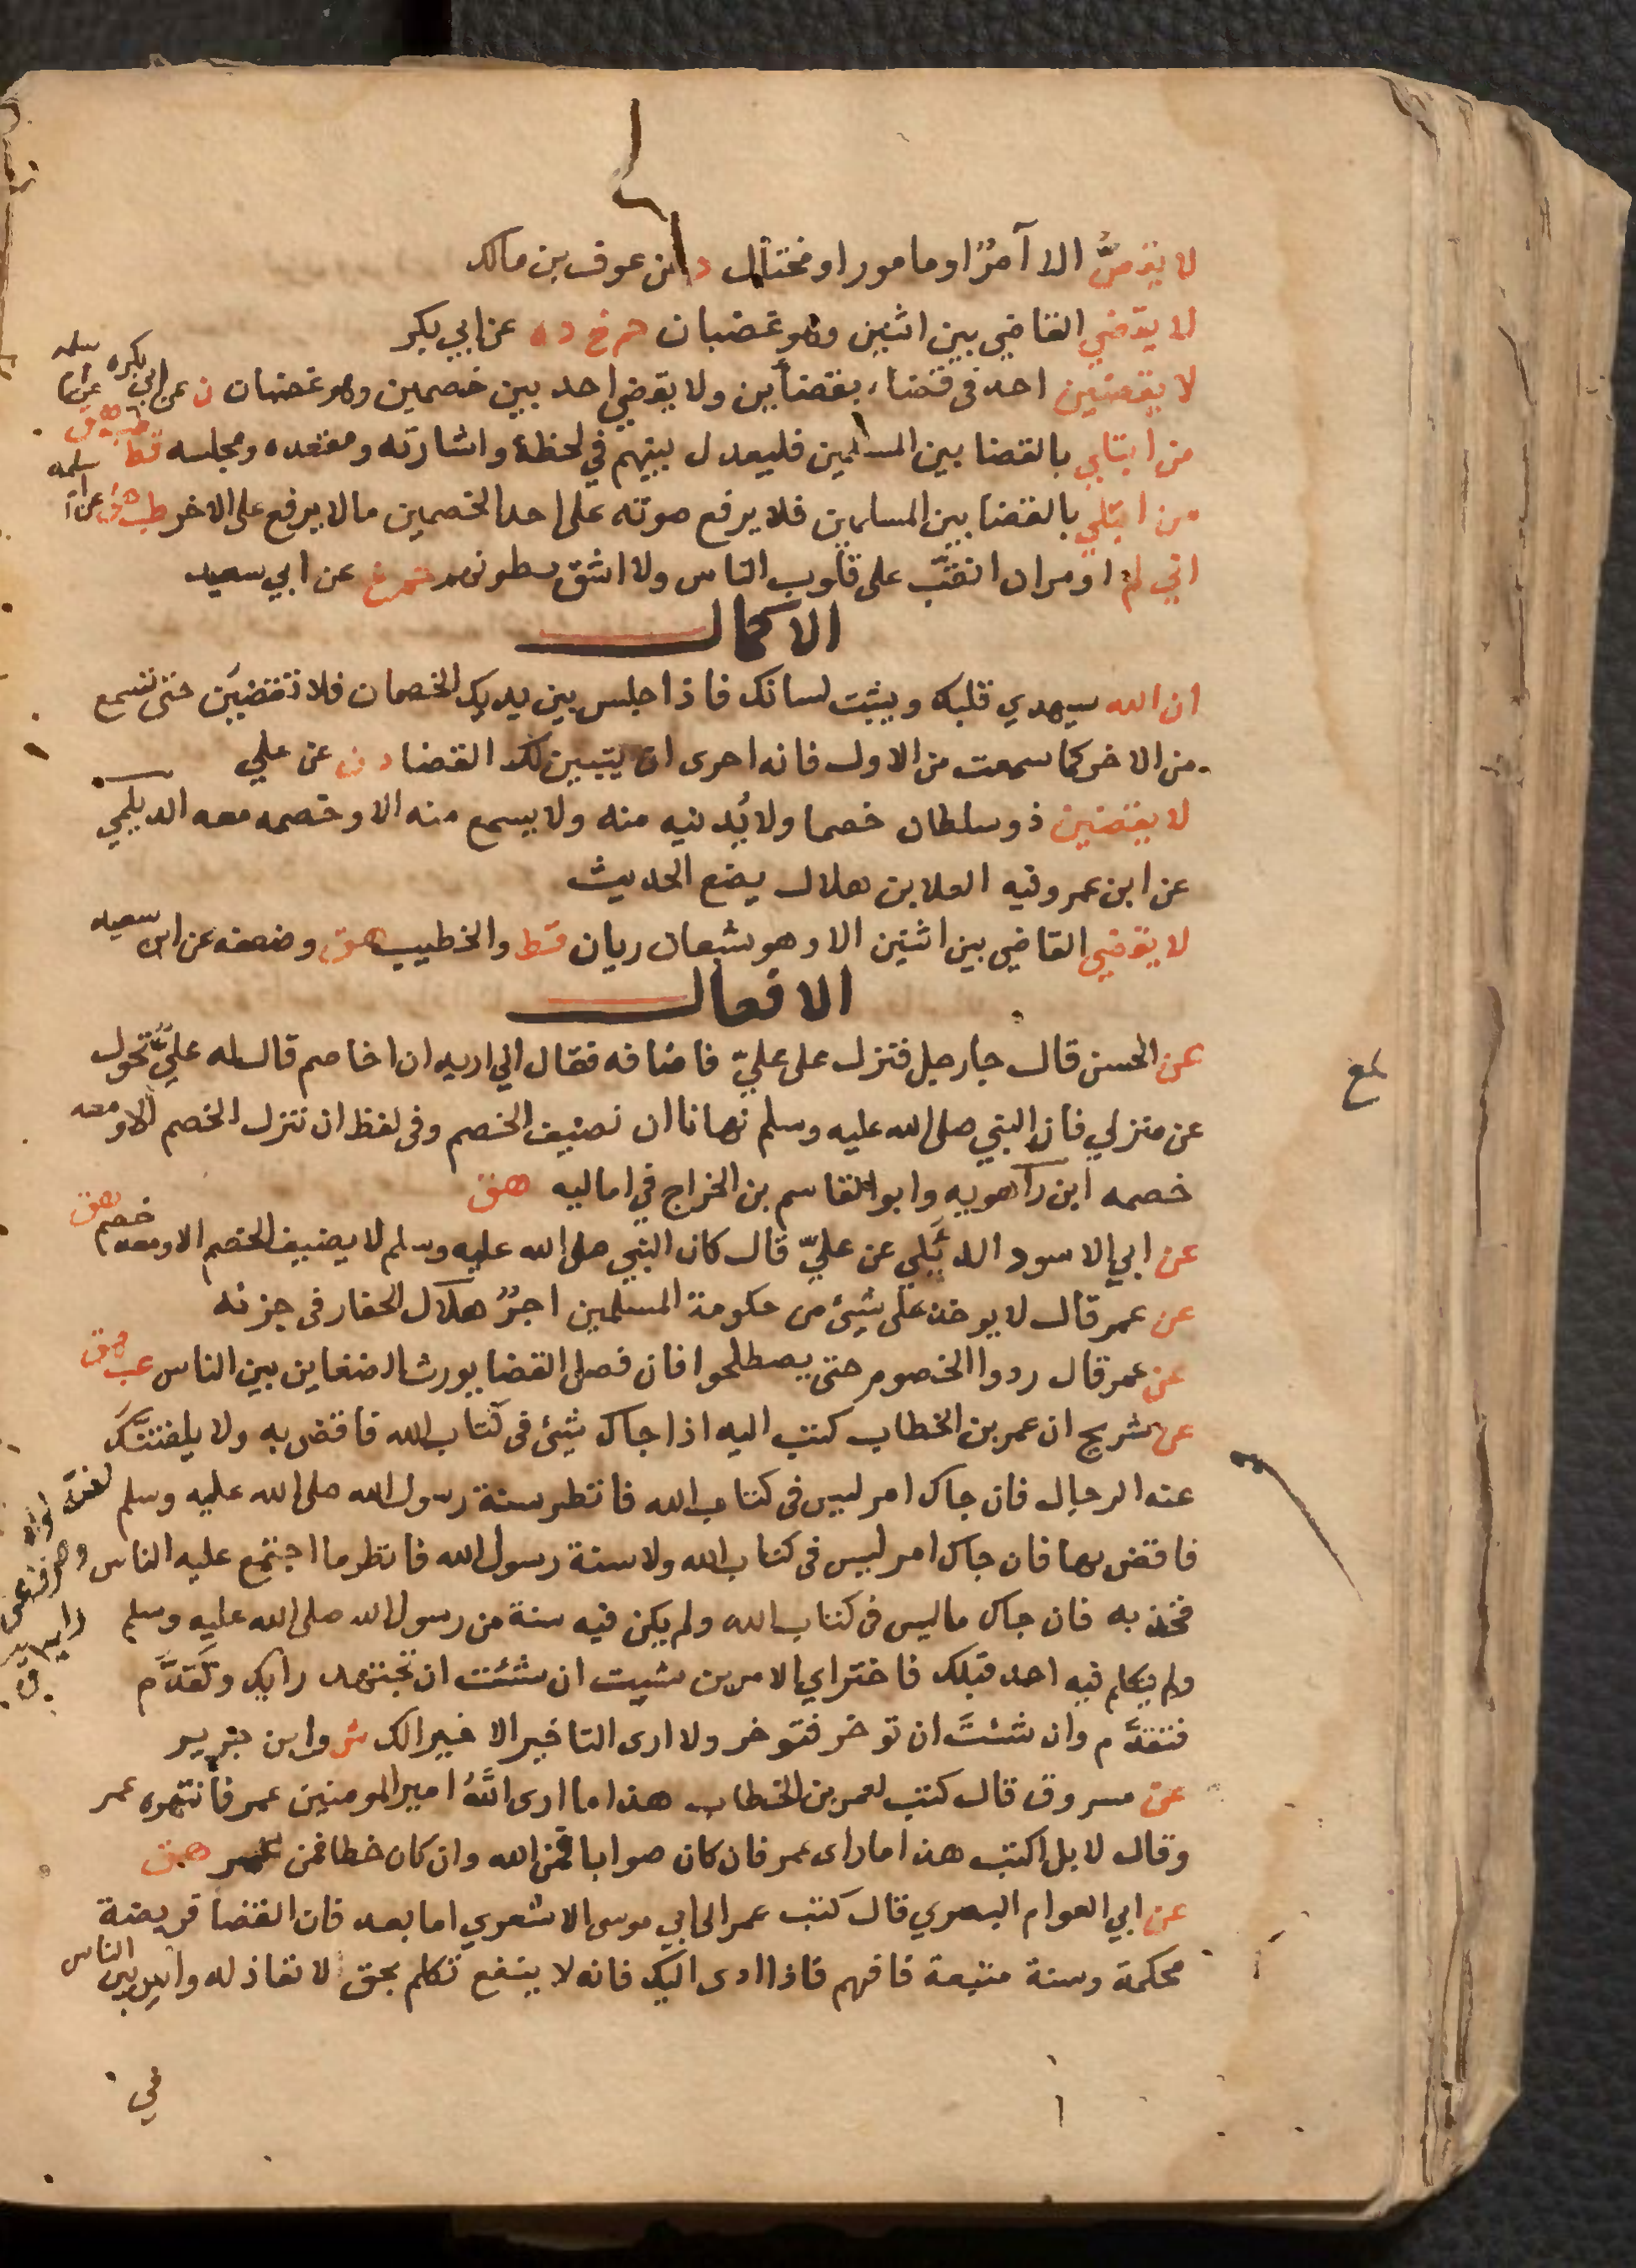 لا يقصُّ الا آمرٌ او مامور او مختال د عن عوف بن مالك
لا يقضي القاضي بين اثنين وهو غضبان حم خ د ه عن ابي بكر
لا يقضين احد في قضاء بقضائين ولا يقضي احد بين خصمين وهو غضبان ن عن ابي بكره
من ابتلي بالقضا بين المسلمين فليعدل بينهم في لحظه واشارته ومقعده ومجلسه قط طب هق عن ام سلمه
من ابتلي بالقضا بين المسلمين فلا يرفع صوته على احد الخصمين ما لا يرفع على الاخر طب هق عن ام سلمه
اني لم اومر ان انقب على قلوب الناس ولا اشق بطونهم حم خ عن ابي سعيد
الاكمال
ان الله سيهدي قلبك ويثبت لسانك فاذا جلس بين يديك الخصمان فلا تقضين حتى تسمع
من الاخر كما سمعت من الاول فانه احرى ان يتبين لك القضا د ن عن علي
لا يقضين ذو سلطان خصما ولا يُدنيه منه ولا يسمع منه الا وخصمه معه الديلمي
عن ابن عمر وفيه العلا بن هلال يضع الحديث
لا يقضي القاضي بين اثنين الا وهو شبعان ريان قط والخطيب هق وضعفه عن ابي سعيد
الافعال
عن الحسن قال جا رجل فنزل على عليّ فاضافه فقال اني اريد ان اخاصم قال له عليٌّ تحول
عن منزلي فان النبي صلى الله عليه وسلم نهانا ان نضيف الخصم وفي لفظ ان ننزل الخصم الا ومعه
خصمه ابن راهويه وابو القاسم بن الجراح في اماليه هق
عن ابي الاسود الدئلي عن عليّ قال كان النبي صلى الله عليه وسلم لا يضيف الخصم الا ومعه خصم هق
عن عمر قال لا يوخذ على شيئ من حكومة المسلمين اجرٌ هلال الحفار في جزئه
عن عمر قال ردوا الخصوم حتى يصطلحوا فان فصل القضا يورث الضغاين بين الناس عب هق
عن شريح ان عمر بن الخطاب كتب اليه اذا جاك شيئ في كتاب الله فاقض به ولا يلفتنَّك
عنه الرجال فان جاك امر ليس في كتاب الله فانظر سنة رسول الله صلى الله عليه وسلم
فاقض بها فان جاك امر ليس في كتاب الله ولا سنة رسول الله فانظر ما اجتمع عليه الناس
فخذ به فان جاك ما ليس في كتاب الله ولم يكن فيه سنة من رسول الله صلى الله عليه وسلم
ولم يتكلم فيه احد قبلك فاختر اي الامرين شيت ان شئت ان تجتهد رايك وتقدَّم
فتقدَّم وان شئتَ ان توخر فتوخر ولا ارى التاخير الا خيرا لك ش وابن جرير
عن مسروق قال كتب لعمر بن الخطاب هذا ما ارى اللهُ امير المومنين عمر فانتهره عمر
وقال لا بل اكتب هذا ما راى عمر فان كان صوابا فمن الله وان كان خطا فمن عمر هق
عن ابي العوام البصري قال كتب عمر الى ابي موسى الاشعري اما بعد فان القضا فريضة
محكمة وسنة متبعة فافهم فاذا ادى اليك فانه لا ينفع تكلم بحق لا نفاذ له وآس بين الناس
في